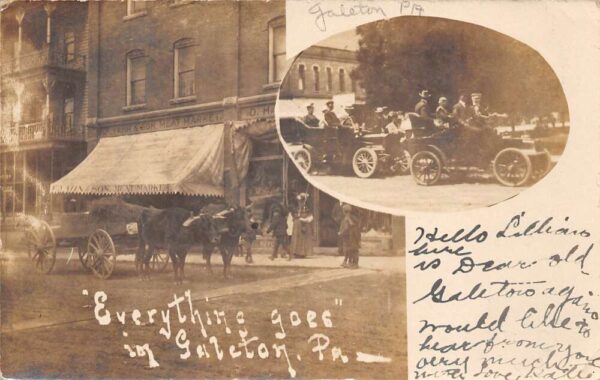 Galeton PA
& SON MEAT MARKET
& SON. MEAT MARKET
"Everything goes"
in Galeton, Pa
Hello Lillian
here
is Dear old
Galeton again
would like to
hear from you
very much
with love,